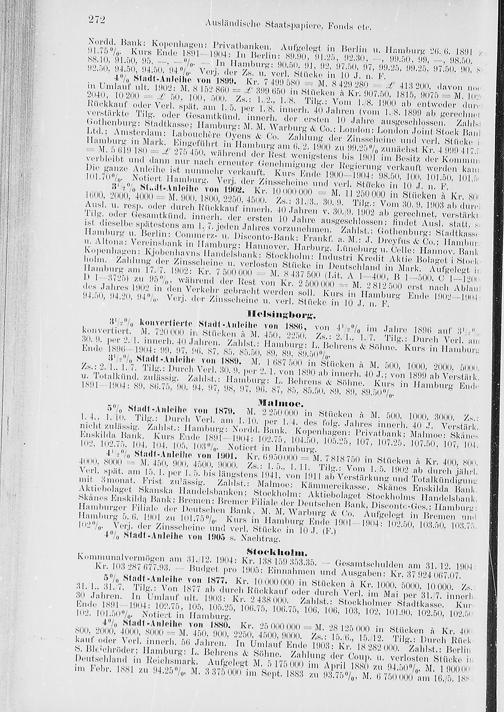 272
Ausländische Staatspapiere, Fonds etc.
Nordd. Bank: Kopenhagen: Privatbanken. Aufgelegt in Berlin u. Hamburg 26. 6. 1891
91.75%. Kurs Ende 1891—1904: In Berlin: 89.90, 91.25, 92.30, —, 99.50, 99, —, 98.50,
88.10, 91.50, 95, —, —% — In Hamburg: 90.50, 91, 92, 97.50, 97, 99.25, 99.25, 97.50, 90,
92.50, 94.50, 94.50, 94%. Verj. der Zs. u. verl. Stücke in 10 J. n. F.
4% Stadt-Anleihe von 1899. Kr. 7 499 580 = M. 8 429 280 = £ 413 200, davon noch
in Umlauf ult. 1902: M. 8 152 860 = £ 399 650 in Stücken à Kr. 907.50, 1815, 9075 = M.
2040, 10 200 = £ 50, 100, 500. Zs.: 1./2., 1./8. Tilg.: Vom 1./8. 1900 ab entweder durch
Rückkauf oder Verl. spät. am 1./5. per 1./8. innerh. 40 Jahren (vom 1./8. 1899 ab gerechnet
verstärkte Tilg. oder Gesamtkünd. innerh. der ersten 10 Jahre ausgeschlossen. Zahlst.
Gothenburg: Stadtkasse; Hamburg: M. M. Warburg & Co.; London: London Joint Stock Bank
Ltd.; Amsterdam: Labouchère Oyens & Co. Zahlung der Zinsscheine und verl. Stücke
Hamburg in Mark. Eingeführt in Hamburg am 6./2. 1900 zu 99.25% zunächst Kr. 4 999 417.
= M. 5 619 180 = £ 275 450, während der Rest wenigstens bis 1901 im Besitz der Kommune
verbleibt und dann nur nach erneuter Genehmigung der Regierung verkauft werden kann
Die ganze Anleihe ist nunmehr verkauft. Kurs Ende 1900—1904: 98.50, 100, 101.50,
101.70%. Notiert Hamburg. Verj. der Zinsscheine und verl. Stücke in 10 J. n. F.
3½% Stadt-Anleihe von 1902. Kr. 10 000 000 = M. 11 250 000 in Stücken à Kr. 800
1600, 2000, 4000 = M. 900, 1800, 2250, 4500. Zs.: 31./3., 30./9. Tilg.: Vom 30./9. 1903 ab durch
Ausl. u. resp. oder durch Rückkauf innerh. 40 Jahren v. 30./9. 1902 ab gerechnet, verstärkte
Tilg. oder Gesamtkünd. innerh. der ersten 10 Jahre ausgeschlossen: findet Ausl. statt,
ist dieselbe spätestens am 1./7. jeden Jahres vorzunehmen. Zahlst.: Gothenburg: Stadtkasse
Hamburg u. Berlin: Commerz- u. Disconto-Bank; Frankf. a. M.: J. Dreyfus & Co.; Hamburg
u. Altona: Vereinsbank in Hamburg; Hannover, Harburg, Lüneburg u. Celle: Hannov. Bank
Kopenhagen: Kjobenhavns Handelsbank; Stockholm: Industri Kredit Aktie Bolaget i Stockholm.
Zahlung der Zinsscheine u. verlosten Stücke in Deutschland in Mark. Aufgelegt in
Hamburg am 17./7. 1902: Kr. 7 500 000 = M. 8 437 500 (Lit. A 1—400, B 1—500, C 1—1200
D 1—3725) zu 95%, während der Rest von Kr. 2 500 000 = M. 2 812 500 erst nach Ablauf
des Jahres 1902 in den Verkehr gebracht werden soll. Kurs in Hamburg Ende 1902—1904:
94.50, 94.20, 94%. Verj. der Zinsscheine u. verl. Stücke in 10 J. n. F.
Helsingborg.
3½% konvertierte Stadt-Anleihe von 1886, von 4½% im Jahre 1896 auf 3½%
konvertiert. M. 720 000 in Stücken à M. 450, 2250. Zs.: 2./1., 1./7. Tilg.: Durch Verl. am
30./9. per 2./1. innerh. 40 Jahren. Zahlst.: Hamburg: L. Behrens & Söhne. Kurs in Hamburg
Ende 1896—1904: 99, 97, 96, 87, 85, 85.50, 89, 89, 89.50%.
3½% Stadt-Anleihe von 1889. M. 1 687 500 in Stücken à M. 500, 1000, 2000, 5000.
Zs.: 2./1., 1./7. Tilg.: Durch Verl. 30./9. per 2./1. von 1890 ab innerh. 40 J.; von 1899 ab Verstärk.
u. Totalkünd. zulässig. Zahlst.: Hamburg: L. Behrens & Söhne. Kurs in Hamburg Ende
1891—1904: 89, 86.75, 90, 94, 97, 98, 97, 96, 87, 85, 85.50, 89, 89, 89.50%.
Malmoe.
5% Stadt-Anleihe von 1879. M. 2 250 000 in Stücken à M. 500, 1000, 3000. Zs.:
1./4., 1./10. Tilg.: Durch Verl. am 1./10. per 1./4. des folg. Jahres innerh. 40 J. Verstärk.
nicht zulässig. Zahlst.: Hamburg: Nordd. Bank. Kopenhagen: Privatbank; Malmoe: Skånes
Enskilda Bank. Kurs Ende 1891—1904: 102.75, 104.50, 105.25, 107, 107.25, 107.50, 107, 104,
102, 102.75, 104, 104, 105, 103%. Notiert in Hamburg.
4½% Stadt-Anleihe von 1901. Kr. 6 950 000 = M. 7 818 750 in Stücken à Kr. 400, 800,
4000, 8000 = M. 450, 900, 4500, 9000. Zs.: 1./5., 1./11. Tilg.: Vom 1./5. 1902 ab durch jährl.
Verl. spät. am 15./1. per 1./5. bis längstens 1941, von 1911 ab Verstärkung und Totalkündigung
mit 3monat. Frist zulässig. Zahlst.: Malmoe: Kämmereikasse, Skånes Enskilda Bank.
Aktiebolaget Skanska Handelsbanken; Stockholm: Aktiebolaget Stockholms Handelsbank,
Skånes Enskilda Bank; Bremen: Bremer Filiale der Deutschen Bank, Disconto-Ges.; Hamburg:
Hamburger Filiale der Deutschen Bank, M. M. Warburg & Co. Aufgelegt in Bremen und
Hamburg 5./6. 1901 zu 101.75%. Kurs in Hamburg Ende 1901—1904: 102.50, 103.50, 103.75,
102%. Verj. der Zinsscheine und verl. Stücke in 10 J. (F.)
4% Stadt-Anleihe von 1905 s. Nachtrag.
Stockholm.
Kommunalvermögen am 31./12. 1904: Kr. 138 159 353.35. — Gesamtschulden am 31./12. 1904
Kr. 103 287 677.93. — Budget pro 1905: Einnahmen und Ausgaben: Kr. 37 924 067.07.
5% Stadt-Anleihe von 1877. Kr. 10 000 000 in Stücken à Kr. 1000, 5000, 10 000. Zs.:
31./1., 31./7. Tilg.: Von 1877 ab durch Rückkauf oder durch Verl. im Mai per 31./7. innerh.
30 Jahren. In Umlauf ult. 1903: Kr. 2 438 000. Zahlst.: Stockholmer Stadtkasse. Kurs
Ende 1891—1904: 102.75, 105, 105.25, 106.75, 106.75, 106, 106, 103, 102, 101.90, 102.50, 102.50,
102, 101.50%. Notiert in Hamburg.
4% Stadt-Anleihe von 1880. Kr. 25 000 000 = M. 28 125 000 in Stücken à Kr. 400
800, 2000, 4000, 8000 = M. 450, 900, 2250, 4500, 9000. Zs.: 15./6., 15./12. Tilg.: Durch Rückkauf
oder Verl. innerh. 56 Jahren. In Umlauf Ende 1903: Kr. 18 282 000. Zahlst.: Berlin:
S. Bleichröder; Hamburg: L. Behrens & Söhne. Zahlung der Coup. u. verlosten Stücke in
Deutschland in Reichsmark. Aufgelegt M. 5 175 000 im April 1880 zu 94.50%, M. 1 900 000
im Febr. 1881 zu 94.25%, M. 3 375 000 im Sept. 1883 zu 93.75%, M. 6 750 000 am 16./5. 188